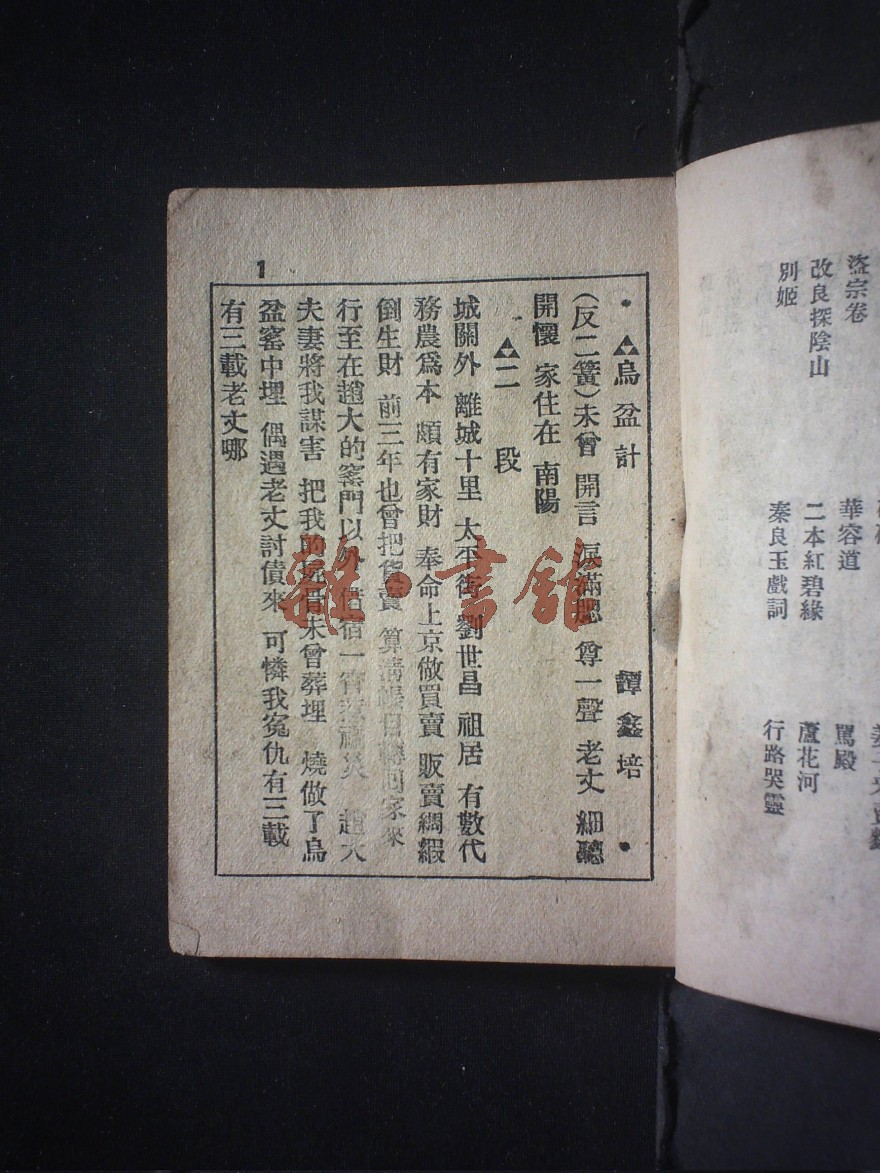 盜宗卷
改良探陰山
別姬
華容道
二本紅碧緣
秦良玉戲詞
罵殿
蘆花河
行路哭靈
1
烏盆計 譚鑫培
(反二簧)未曾 開言 淚滿腮 尊一聲 老丈 細聽
開懷 家住在 南陽
二段
城關外 離城十里 太平街 劉世昌 祖居 有數代
務農爲本 頗有家財 奉命上京做買賣 販賣綢緞
倒生財 前三年也曾把貨賣 算清賬目轉回家來
行至在趙大的窰門以外 借宿一宵惹禍災 趙大
夫妻將我謀害 把我的屍骨未曾葬埋 燒做了烏
盆窰中埋 偶遇老丈討債來 可憐我冤仇有三載
有三載老丈哪
雜·書館